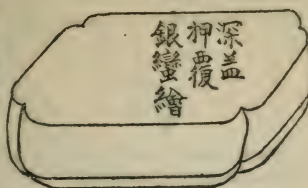 深盖
押覆
銀蠻繪